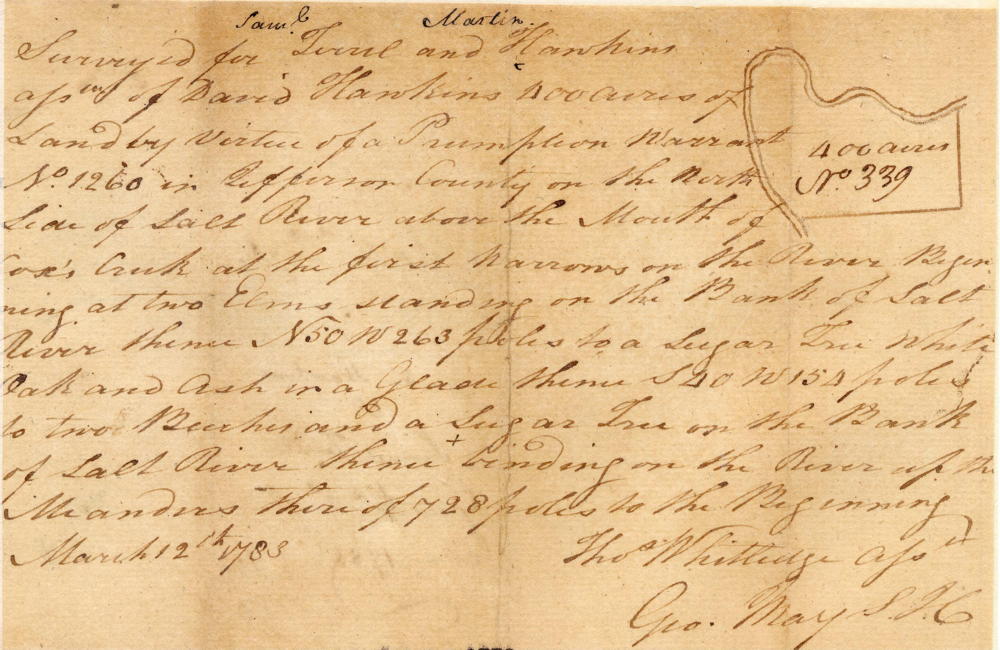 Saml Martin.
Survey'd for Terrel and Hawkins
assees of David Hawkins 400 acres of
Land by Virtue of a Prumption Warrant
No. 1260 in Jefferson County on the North
Side of Salt River above the Mouth of
Cox's Creek at the first Narrows on the River Begin
ning at two Elms standing on the Bank of Salt
River thence N50W 263 poles to a Sugar Tree White
Oak and Ash in a Glade thence S40W 154 poles
to two Beeches and a Sugar Tree on the Bank
of Salt River thence binding on the River up the
Meanders there of 728 poles to the Beginning
March 12th 1783
Thos Whitledge Asst
Geo. May S.J.C
400 acres
No 339